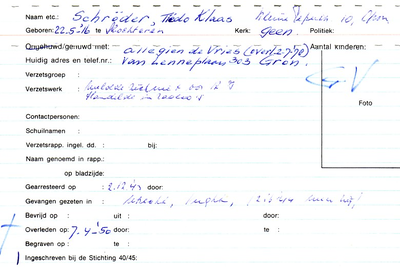 Naam etc.: Schröder, Thédo Klaas Kleine 10,
Geboren: 22.5.'16 te Kerk: Geen. Politiek:
Ongehuwd/gehuwd met: Allegien de Vries (overl. 2.7.72) Aantal kinderen:
Huidig adres en telef.nr.: Van Lenneplaan 303 Gron.
Verzetsgroep :
Verzetswerk : meldde zich
Handelde in radio's
Foto
Contactpersonen:
Schuilnaam :
Verzetsrapp. ingel. dd. : bij:
Naam genoemd in rapp.:
op bladzijde:
Gearresteerd op : 2.12.'43 door:
Gevangen gezeten in : Utrecht, Vught,
Bevrijd op : uit : door:
Overleden op: 7.4.'50 door: te :
Begraven op : te :
Ingeschreven bij de Stichting 40/45: